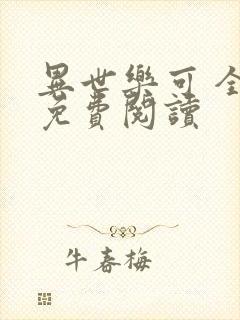 異世樂可全
免費閱讀
牛春梅